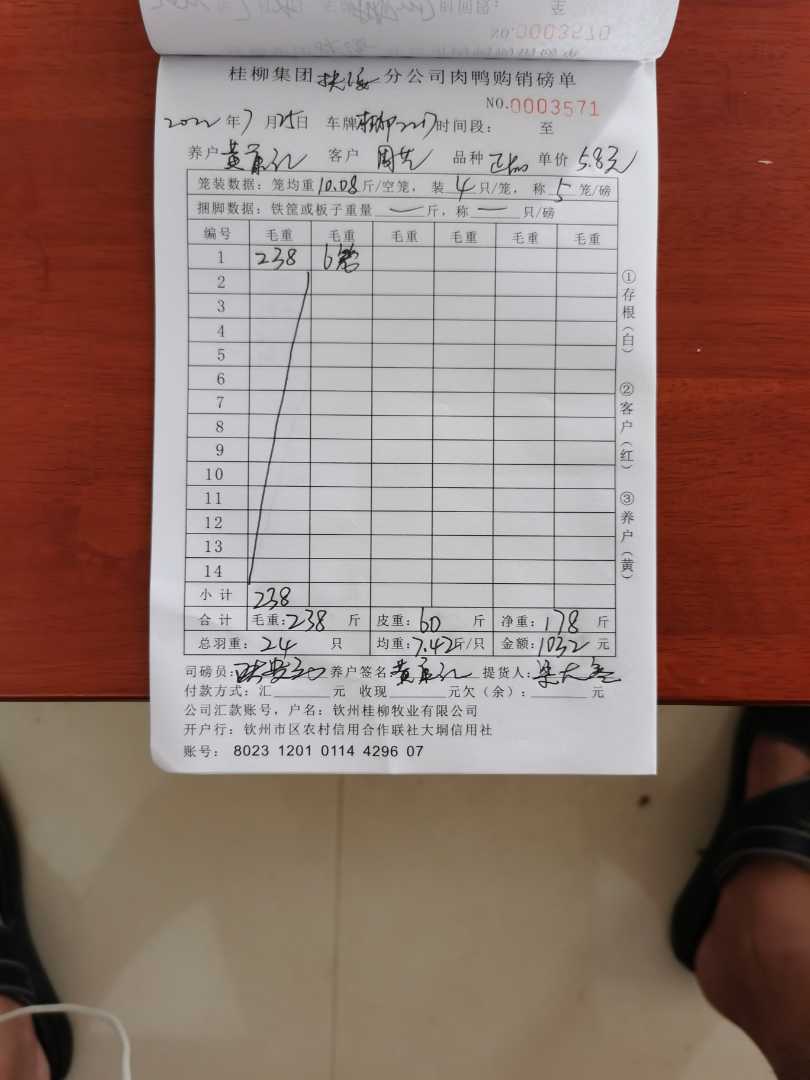 桂柳集团扶绥分公司肉鸭购销磅单
NO.0003571
2022年7月25日 车牌桂柳2217时间段: 至
养户黄 客户 周 品种 正 单价5.8元
笼装数据:笼均重10.08斤/空笼,装4只/笼,称5笼/磅
捆脚数据:铁筐或板子重量 一 斤,称 一 只/磅
编号 毛重 毛重 毛重 毛重 毛重 毛重
1 238 6笼
2
3
4
5
6
7
8
9
10
11
12
13
14
小计 238
合计 毛重:238斤 皮重:60斤 净重:178斤
总羽重:24只 均重:7.42斤/只 金额:1032元
司磅员: 养户签名:黄 提货人:梁大
付款方式:汇______元 收现______元欠(余):______元
公司汇款账号,户名:钦州桂柳牧业有限公司
开户行:钦州市区农村信用合作联社大垌信用社
账号: 8023 1201 0114 4296 07
①存根(白)
②客户(红)
③养户(黄)
NO.0003570